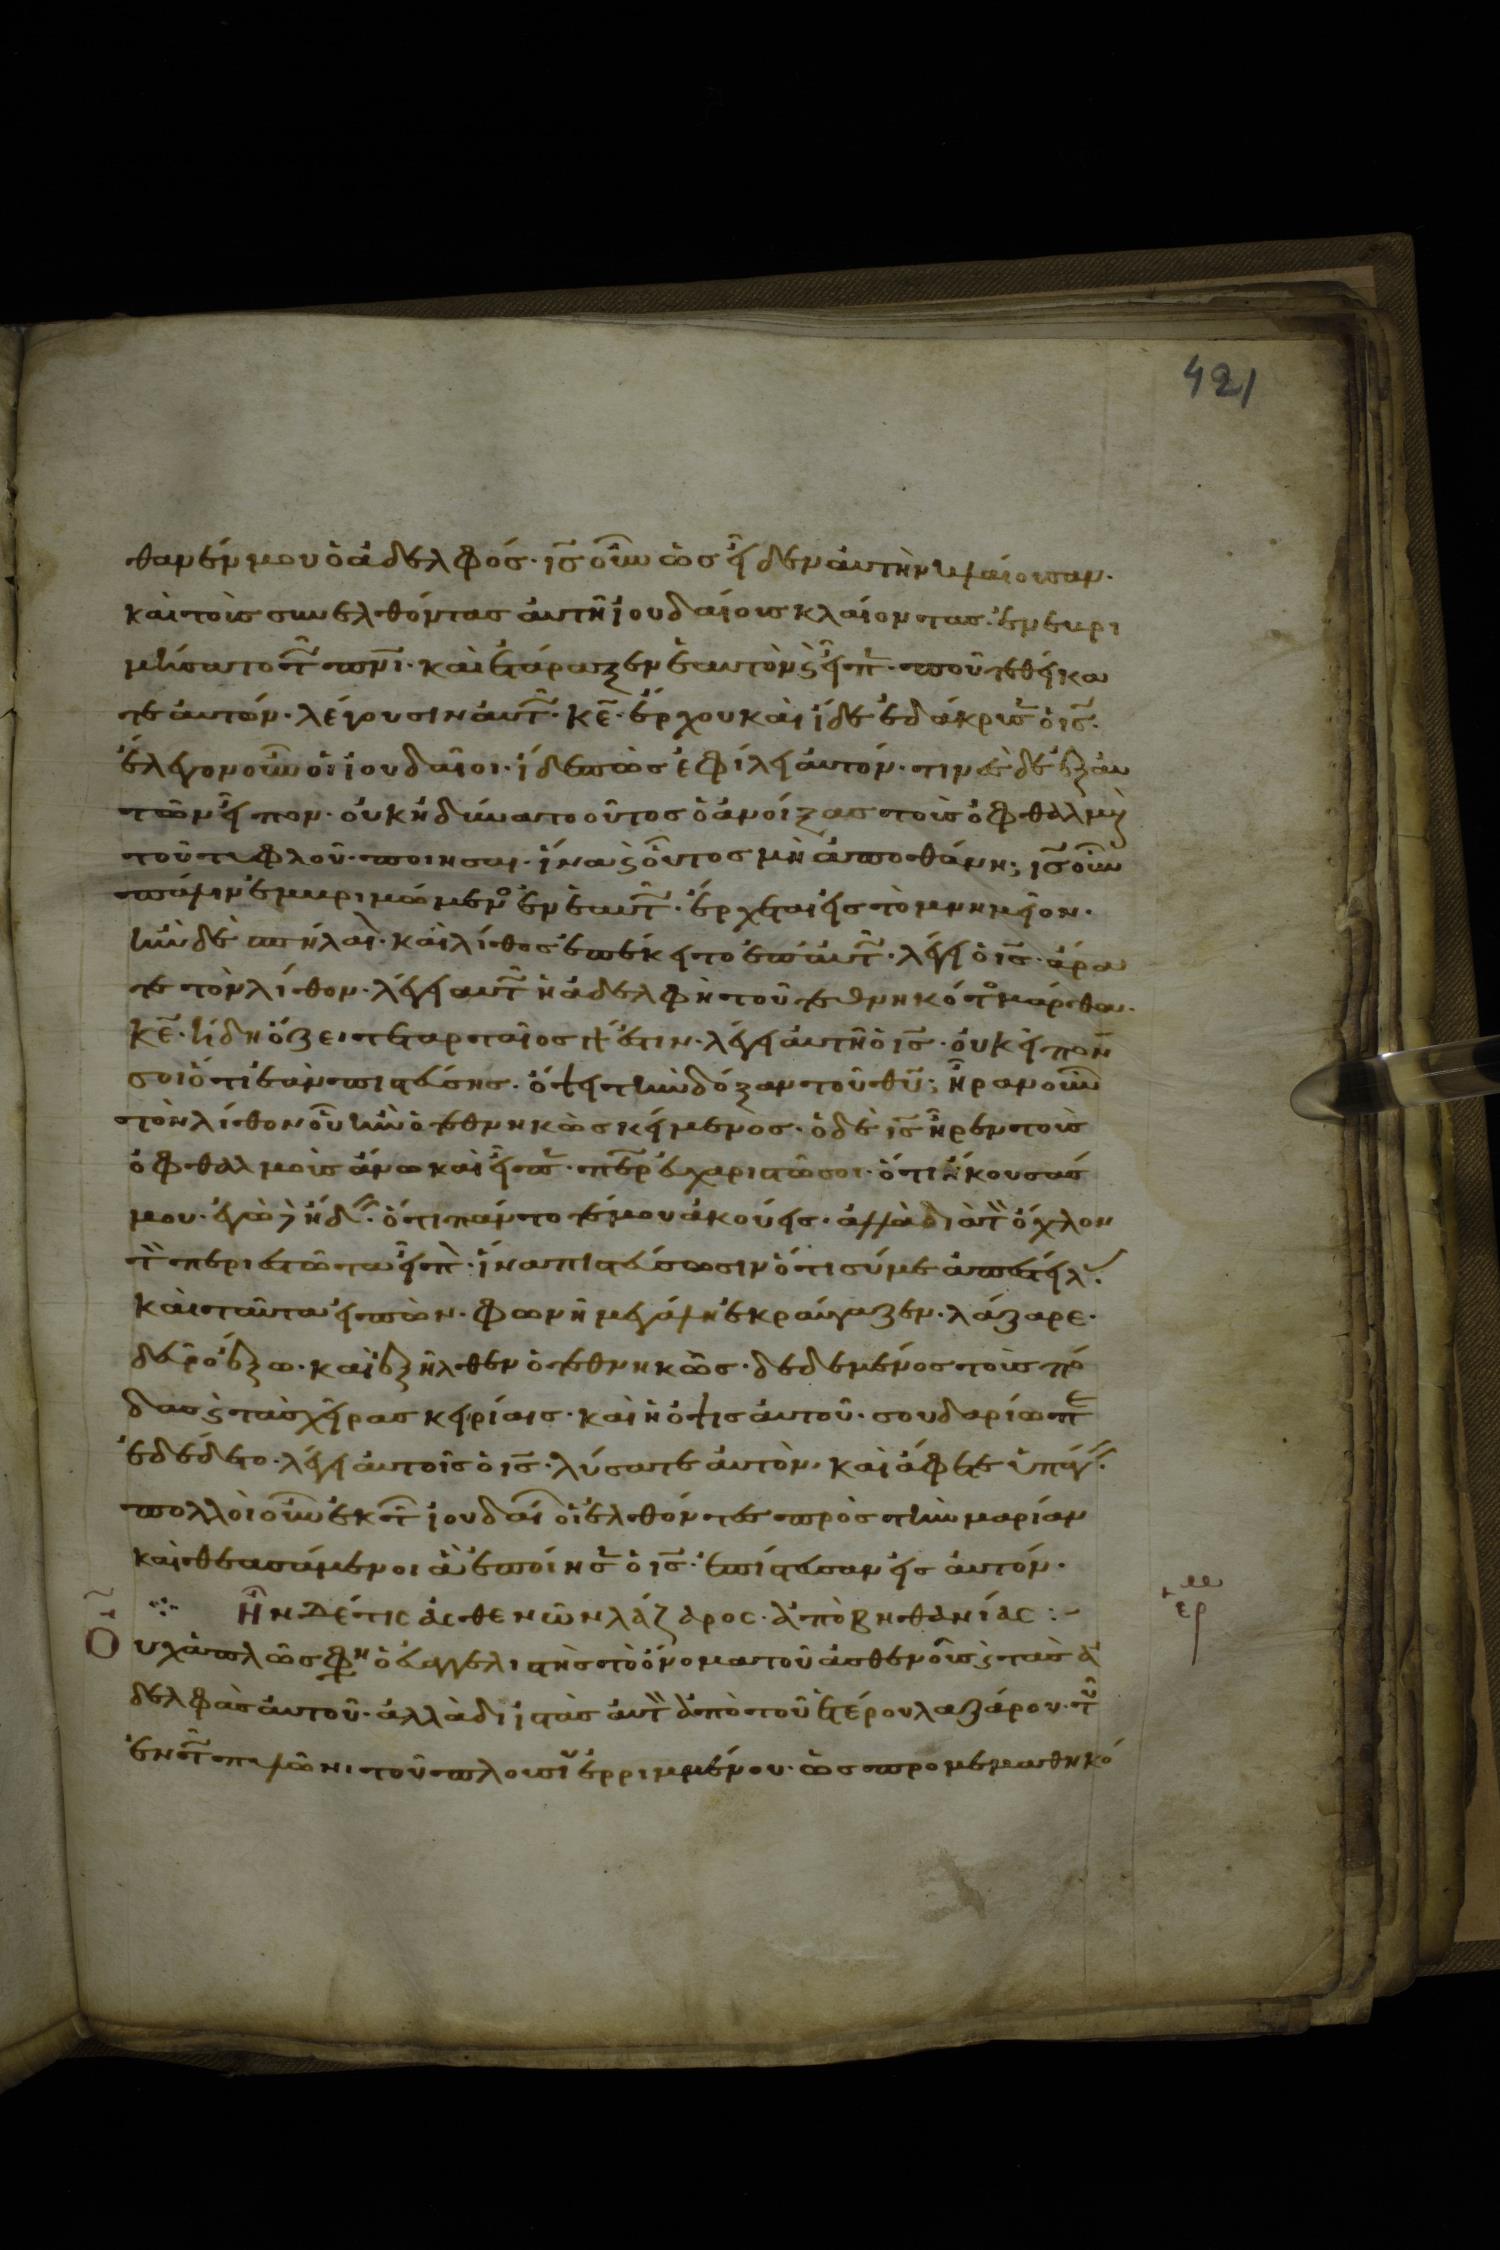 421
θανέν μου ὁ ἀδελφός· ι̅ς̅ οὖν ὡς εἶδεν αὐτὴν κλαίουσαν·
καὶ τοὺς συνελθόντας αὐτῇ ἰουδαίους κλαίοντας· ἐνεβρι
μήσατο τῶ πνι· καὶ ἐτάραξεν ἑαυτὸν ϛ εἶπ· ποῦ τεθείκα
τε αὐτόν· λέγουσιν αὐτῶ· κ̅ε̅· ἔρχου καὶ ἴδε ἐδάκρυσ ὁ ι̅ς̅·
ἔλεγον οὖν οἱ ἰουδαῖοι· ἴδε πῶς ἐφίλει αὐτόν· τινὲς δὲ ἐξ αυ
τῶν εἶπον· οὐκ ἠδύνατο οὗτος ὁ ἀνοίξας τοὺς ὀφθαλμοὺς
τοῦ τυφλοῦ· ποιῆσαι· ἵνα ϛ οὗτος μὴ ἀποθάνη; ι̅ς̅ οὖν
πάλιν ἐμβριμώμενο ἐν ἑαυτῶ· ἔρχεται εἰς τὸ μνημεῖον·
ἦν δὲ σπήλαι· καὶ λίθος ἐπέκειτο ἐπ αὐτῶ· λέγει ὁ ι̅ς̅· ἄρα
τε τὸν λίθον· λέγει αὐτῶ ἡ ἀδελφὴ τοῦ τεθνηκότο μάρθα·
κ̅ε̅· ἤδη ὄζει· τεταρταῖος γάρ ἐστιν· λέγει αὐτῆ ὁ ι̅ς̅· οὐκ εἶπον
σοι ὅτι ἐὰν πιστεύσης· ὄψει τὴν δόξαν τοῦ θ̅υ̅; ἦραν οὖν
τὸν λίθον οὗ ἦν ὁ τεθνηκὼς κείμενος· ὁ δὲ ι̅ς̅ ἦρεν τοὺς
ὀφθαλμοὺς ἄνω καὶ εἶπ· περ εὐχαριστῶ σοι· ὅτι ἤκουσάς
μου· ἐγὼ δὲ ἤδειν· ὅτι πάντοτέ μου ἀκούεις· ἀλλὰ διὰ τ ὄχλον
τ περιεστῶτα εἶπ· ἵνα πιστεύσωσιν ὅτι σύ με ἀπέστειλ·
καὶ ταῦτα εἰπὼν· φωνῆ μεγάλη ἐκραύγαζεν· λάζαρε·
δεῦρο ἔξω· καὶ ἐξῆλθεν ὁ τεθνηκὼς· δεδεμένος τοὺς πό
δας ϛ τὰς χεῖρας κειρίαις· καὶ ἡ ὄψις αὐτοῦ· σουδαρίω πε
εδέδετο· λέγει αὐτοῖς ὁ ι̅ς̅· λύσατε αὐτὸν· καὶ ἄφετε ὑπάγειν·
πολλοὶ οὖν ἐκ τῶν ἰουδαί οἱ ἐλθόντες πρὸς τὴν μαρίαν
καὶ θεασάμενοι ἃ ἐποίησ ὁ ι̅ς̅· ἐπίστευσαν εἰς αὐτόν·
Ἦν δέ τις ἀσθενῶν λάζαρος· ἀπὸ βηθανίας :-
Ουχ ἁπλῶς φη ὁ εὐαγγελιστὴς τὸ ὄνομα τοῦ ἀσθενοῦς ϛ τὰς ἀ
δελφὰς αὐτοῦ· ἀλλὰ διιστὰς αὐτ ἀπὸ τοῦ ἑτέρου λαζάρου· τοῦ
ἐν τῶ πυλῶνι τοῦ πλουσί ἐρριμμένου· ὡς προμεμαθηκό
ερ